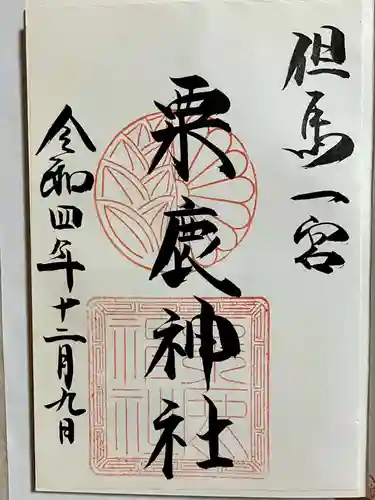 但馬一宮
粟鹿神社
令和四年十二月九日
粟鹿神社